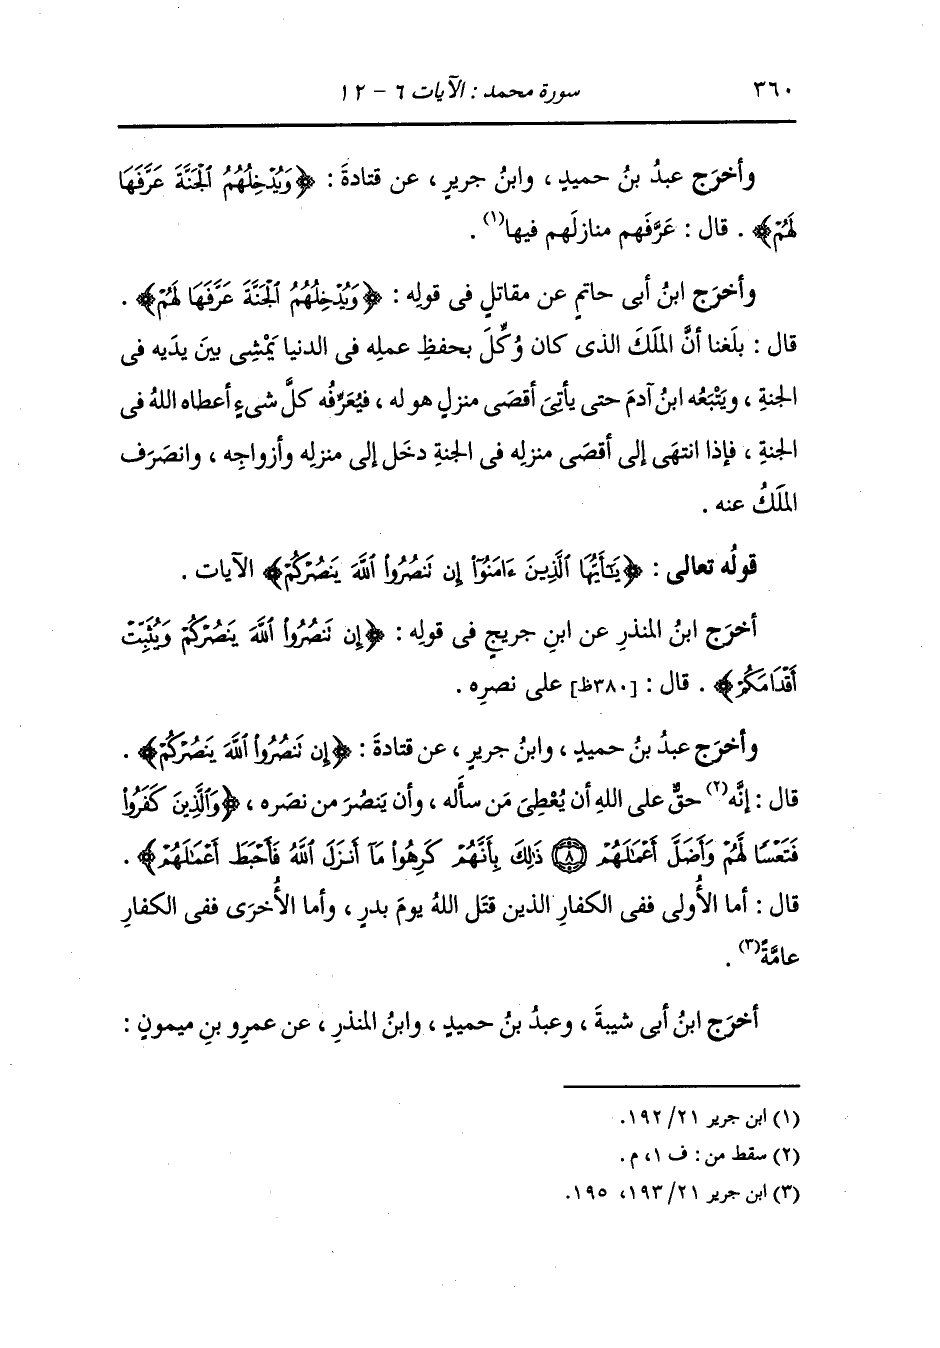 ٣٦٠ سورة محمد : الآيات ٦ - ١٢
وأخرَج عبدُ بنُ حميدٍ ، وابنُ جريرٍ ، عن قتادةَ : ﴿وَيُدْخِلُهُمُ ٱلْجَنَّةَ عَرَّفَهَا
لَهُمْ﴾ . قال : عَرَّفَهم منازلَهم فيها(١) .
وأخرَج ابنُ أبى حاتمٍ عن مقاتلٍ فى قولِه : ﴿وَيُدْخِلُهُمُ ٱلْجَنَّةَ عَرَّفَهَا لَهُمْ﴾ .
قال : بلَغنا أنَّ المَلَكَ الذى كان وُكِّلَ بحفظِ عملِه فى الدنيا يَمْشِى بينَ يدَيه فى
الجنةِ ، ويَتْبَعُه ابنُ آدمَ حتى يأتِىَ أقصَى منزلٍ هو له ، فيُعَرِّفُه كلَّ شىءٍ أعطاه اللهُ فى
الجنةِ ، فإذا انتهَى إلى أقصَى منزلِه فى الجنةِ دخَل إلى منزلِه وأزواجِه ، وانصَرَف
المَلَكُ عنه .
قولُه تعالى : ﴿يَـٰٓأَيُّهَا ٱلَّذِينَ ءَامَنُوٓا۟ إِن تَنصُرُوا۟ ٱللَّهَ يَنصُرْكُمْ﴾ الآيات .
أخرَج ابنُ المنذرِ عن ابنِ جريجٍ فى قولِه : ﴿إِن تَنصُرُوا۟ ٱللَّهَ يَنصُرْكُمْ وَيُثَبِّتْ
أَقْدَامَكُمْ﴾ . قال : [٣٨٠ظ] على نصرِه .
وأخرَج عبدُ بنُ حميدٍ ، وابنُ جريرٍ ، عن قتادةَ : ﴿إِن تَنصُرُوا۟ ٱللَّهَ يَنصُرْكُمْ﴾ .
قال : إنَّه(٢) حقٌّ على اللهِ أن يُعْطِىَ مَن سأَله ، وأن يَنصُرَ من نصَره ، ﴿وَٱلَّذِينَ كَفَرُوا۟
فَتَعْسًا لَّهُمْ وَأَضَلَّ أَعْمَـٰلَهُمْ ۝٨ ذَٰلِكَ بِأَنَّهُمْ كَرِهُوا۟ مَآ أَنزَلَ ٱللَّهُ فَأَحْبَطَ أَعْمَـٰلَهُمْ﴾ .
قال : أما الأُولى ففى الكفارِ الذين قتَل اللهُ يومَ بدرٍ ، وأما الأُخرَى ففى الكفارِ
عامَّةً(٣) .
أخرَج ابنُ أبى شيبةَ ، وعبدُ بنُ حميدٍ ، وابنُ المنذرِ ، عن عمرِو بنِ ميمونٍ :
(١) ابن جرير ٢١/ ١٩٢.
(٢) سقط من : ف ١، م .
(٣) ابن جرير ٢١/ ١٩٣، ١٩٥.